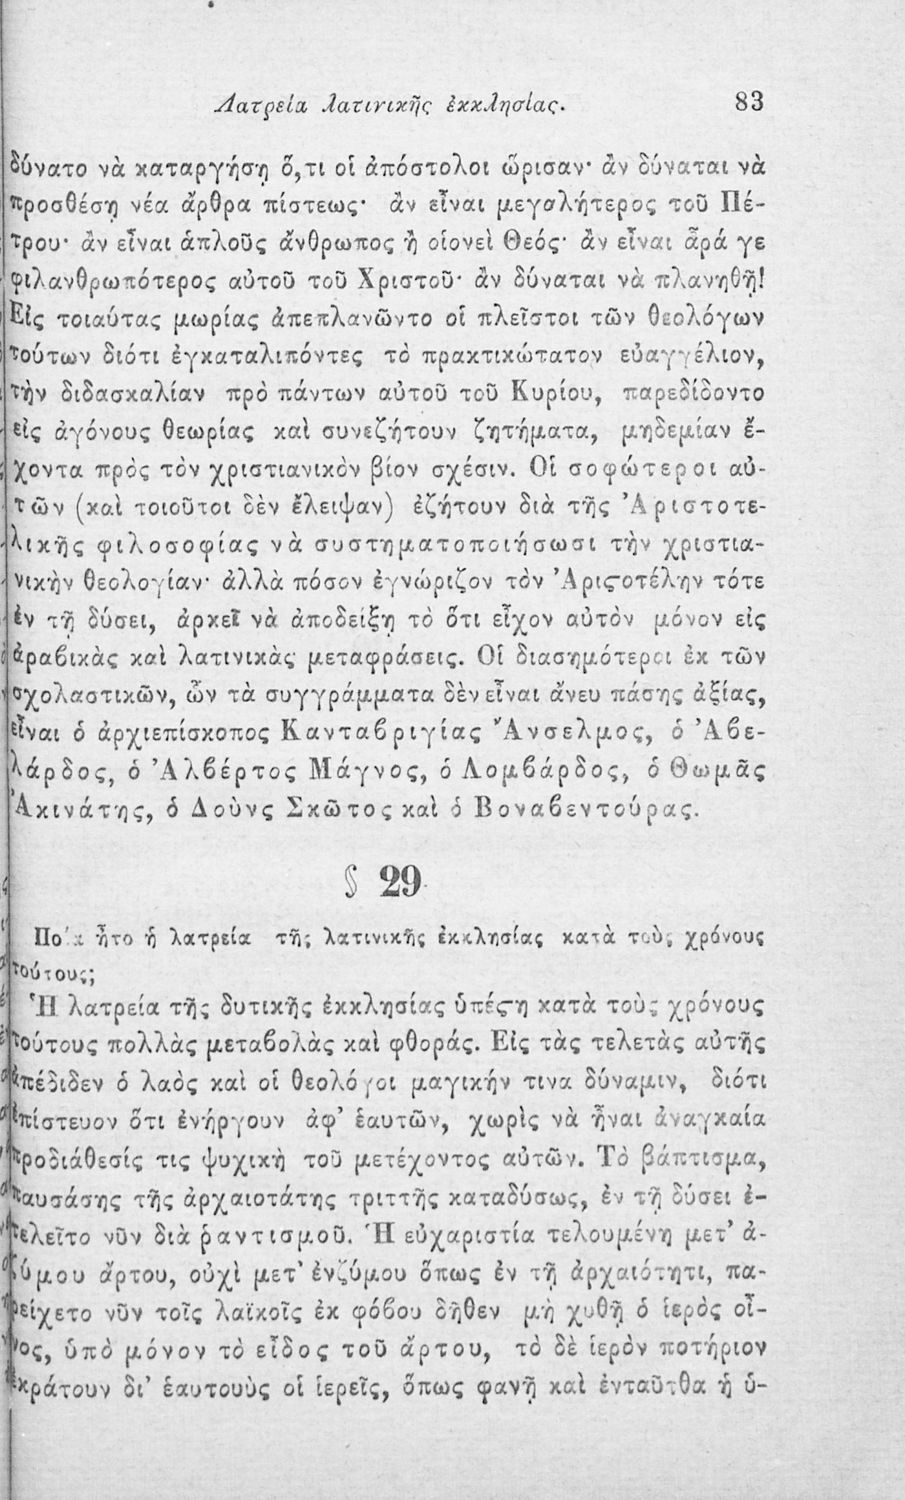 Λατρεία λατινικῆς ἐκκλησίας. 83
δύνατο νὰ καταργήσῃ ὅ,τι οἱ ἀπόστολοι ὥρισαν· ἂν δύναται νὰ
προσθέσῃ νέα ἄρθρα πίστεως· ἂν εἶναι μεγαλήτερος τοῦ Πέ-
τρου· ἂν εἶναι ἁπλοῦς ἄνθρωπος ἢ οἱονεὶ Θεός· ἂν εἶναι ἆρά γε
φιλανθρωπότερος αὐτοῦ τοῦ Χριστοῦ· ἂν δύναται νὰ πλανηθῇ!
Εἰς τοιαύτας μωρίας ἀπεπλανῶντο οἱ πλεῖστοι τῶν θεολόγων
τούτων διότι ἐγκαταλιπόντες τὸ πρακτικώτατον εὐαγγέλιον,
τὴν διδασκαλίαν πρὸ πάντων αὐτοῦ τοῦ Κυρίου, παρεδίδοντο
εἰς ἀγόνους θεωρίας καὶ συνεζήτουν ζητήματα, μηδεμίαν ἔ-
χοντα πρὸς τὸν χριστιανικὸν βίον σχέσιν. Οἱ σοφώτεροι αὐ-
τῶν (καὶ τοιοῦτοι δὲν ἔλειψαν) ἐζήτουν διὰ τῆς Ἀριστοτε-
λικῆς φιλοσοφίας νὰ συστηματοποιήσωσι τὴν χριστια-
νικὴν θεολογίαν· ἀλλὰ πόσον ἐγνώριζον τὸν Ἀριϛοτέλην τότε
ἐν τῇ δύσει, ἀρκεῖ νὰ ἀποδείξῃ τὸ ὅτι εἶχον αὐτὸν μόνον εἰς
ἀραβικὰς καὶ λατινικὰς μεταφράσεις. Οἱ διασημότεροι ἐκ τῶν
σχολαστικῶν, ὧν τὰ συγγράμματα δὲν εἶναι ἄνευ πάσης ἀξίας,
εἶναι ὁ ἀρχιεπίσκοπος Κανταβριγίας Ἄνσελμος, ὁ Ἀβε-
λάρδος, ὁ Ἀλβέρτος Μάγνος, ὁ Λομβάρδος, ὁ Θωμᾶς
Ἀκινάτης, ὁ Δοὺνς Σκῶτος καὶ ὁ Βοναβεντούρας.
§ 29
Ποία ἦτο ἡ λατρεία τῆς λατινικῆς ἐκκλησίας κατὰ τοὺς χρόνους
τούτους;
Ἡ λατρεία τῆς δυτικῆς ἐκκλησίας ὑπέϛη κατὰ τοὺς χρόνους
τούτους πολλὰς μεταβολὰς καὶ φθοράς. Εἰς τὰς τελετὰς αὐτῆς
ἀπέδιδεν ὁ λαὸς καὶ οἱ θεολόγοι μαγικήν τινα δύναμιν, διότι
ἐπίστευον ὅτι ἐνήργουν ἀφ’ ἑαυτῶν, χωρὶς νὰ ἦναι ἀναγκαία
προδιάθεσίς τις ψυχικὴ τοῦ μετέχοντος αὐτῶν. Τὸ βάπτισμα,
παυσάσης τῆς ἀρχαιοτάτης τριττῆς καταδύσως, ἐν τῇ δύσει ἐ-
τελεῖτο νῦν διὰ ῥαντισμοῦ. Ἡ εὐχαριστία τελουμένη μετ’ ἀ-
ζύμου ἄρτου, οὐχὶ μετ’ ἐνζύμου ὅπως ἐν τῇ ἀρχαιότητι, πα-
ρείχετο νῦν τοῖς λαϊκοῖς ἐκ φόβου δῆθεν μὴ χυθῇ ὁ ἱερὸς οἶ-
νος, ὑπὸ μόνον τὸ εἶδος τοῦ ἄρτου, τὸ δὲ ἱερὸν ποτήριον
ἐκράτουν δι’ ἑαυτουὺς οἱ ἱερεῖς, ὅπως φανῇ καὶ ἐνταῦθα ἡ ὑ-